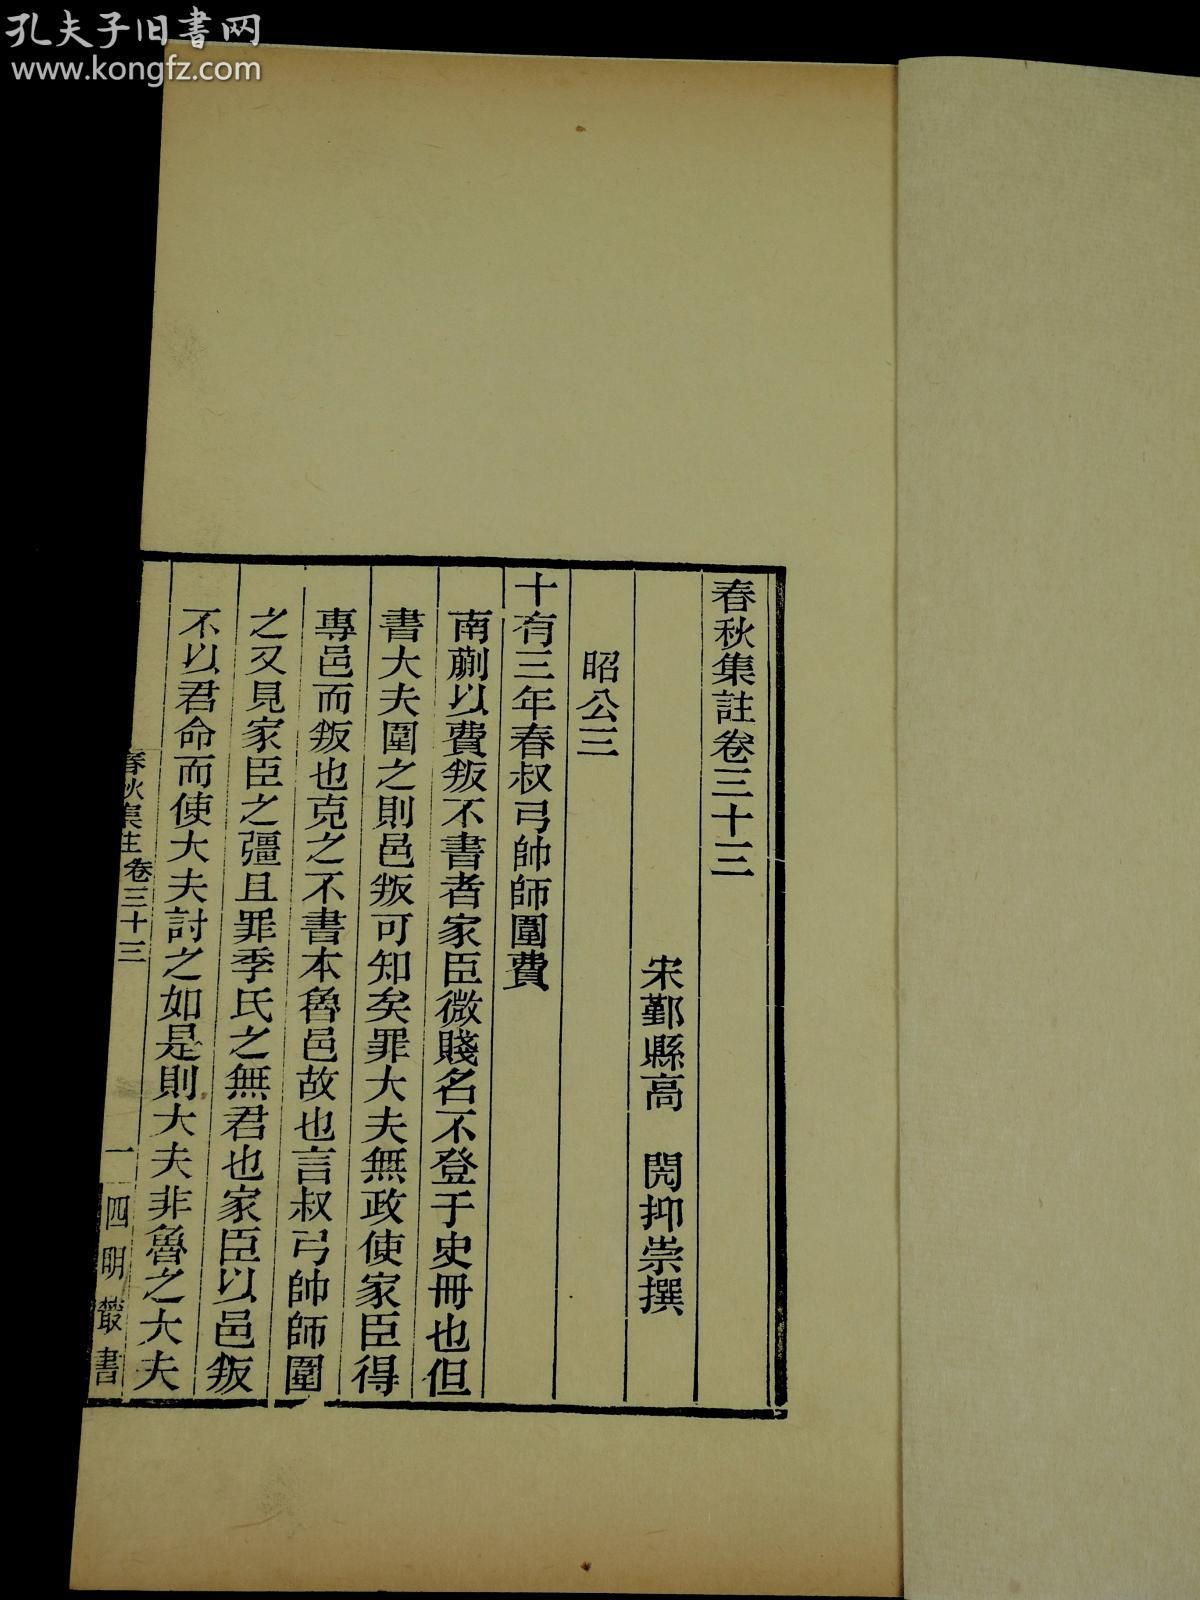 孔夫子旧書网
www.kongfz.com
春秋集註卷三十三
宋鄞縣高　閌抑崇撰
昭公三
十有三年春叔弓帥師圍費
南蒯以費叛不書者家臣微賤名不登于史冊也但
書大夫圍之則邑叛可知矣罪大夫無政使家臣得
專邑而叛也克之不書本魯邑故也言叔弓帥師圍
之又見家臣之彊且罪季氏之無君也家臣以邑叛
不以君命而使大夫討之如是則大夫非魯之大夫
春秋集註卷三十三
一
四明叢書